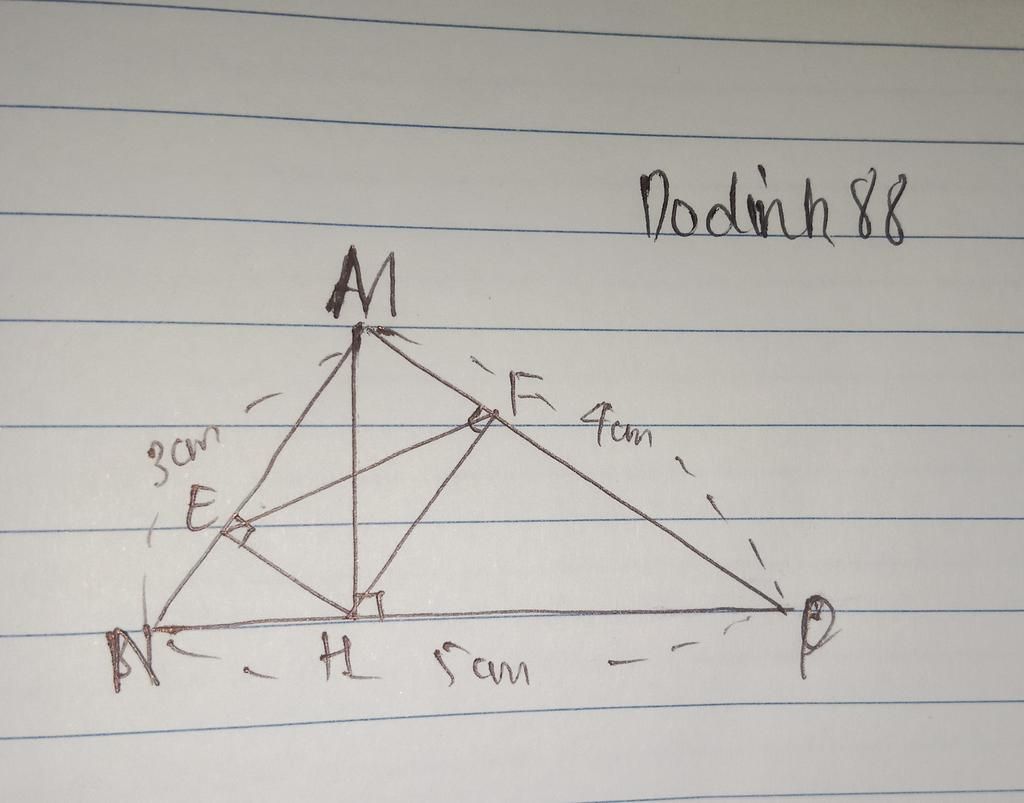 Dodinh 88
M
F
4cm
3cm
E
N H 5cm P